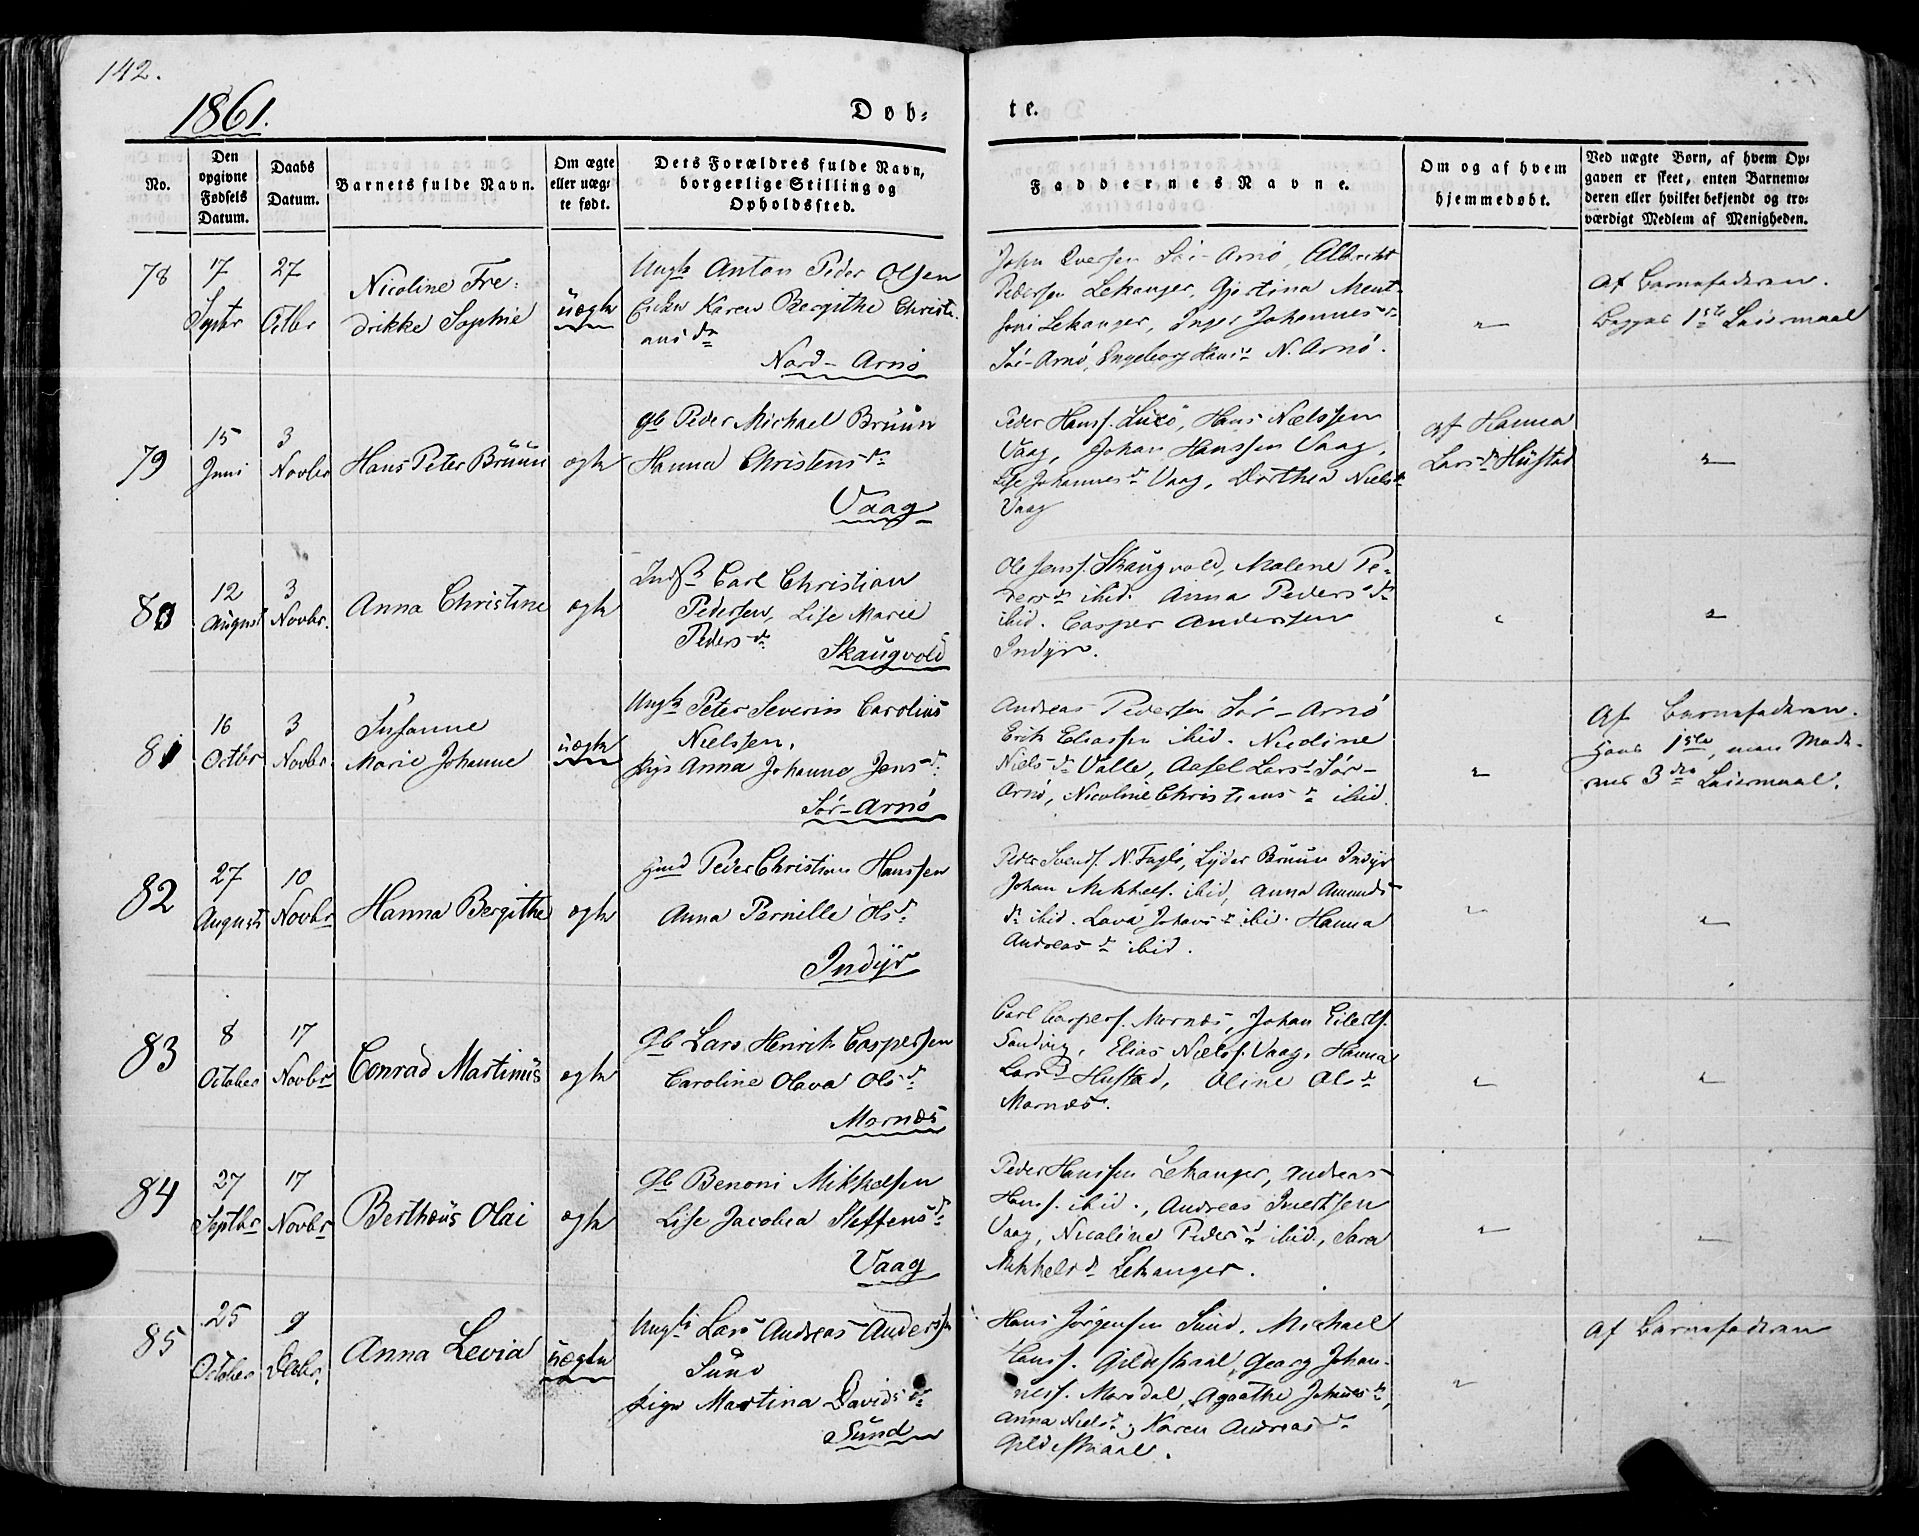 142.
1861.
Døb-
te.
No.
Den opgivne Fødsels Datum.
Daabs Datum.
Barnets fulde Navn.
Om ægte eller uæg- te født.
Dets Forældres fulde Navn, borgerlige Stilling og Opholdssted.
Faddernes Navne.
Om og af hvem hjemmedøbt.
Ved uægte Børn, af hvem Op- gaven er skeet, enten Barnemo- deren eller hvilket bekjendt og tro- værdigt Medlem af Menigheden.
78
17 Septbr
27 Octbr
Nicoline Fre-
drikke Sophie
uægte
Ungk Anton Peder Olsen
Karen Bergithe Christi-
ans dr
Nord-Arnø
John Iversen Sør-Arnø, Albrecht
Pedersen Lekanger, Gjertina Ment-
Lekanger, Inger Johannes dr
Sør-Arnø, Engeborg Hans dr N. Arnø.
"
Af Barnefaderen.
Begges 1ste Leiermaal
79
15 Juni
3 Novbr
Hans Peter Bruun
ægte
Gb Peder Michael Bruun
Hanna Christens dr
Vaag
Peder Hanss. , Hans Nielssen
Vaag, Johan Hanssen Vaag,
Lise Johannes dr Vaag, Dorthea Niels dr
Vaag
af Hanna
Lars dr Hustad
"
80
12 August
3 Novbr.
Anna Christine
ægte
Inds Carl Christian
Pedersen, Lise Marie
Peders dr
Skaugvold
Ole Jenss. Skaugvold, Malene Pe-
ders dr ibid. Anna Peders dr
ibid. Casper Anderssen
Indyr.
"
"
81
16 Octbr
3 Novbr.
Susanne
Marie Johanne
uægte
Ungk Peter Severin Carolius
Nielssen,
Pige Anna Johanna Jens dr
Sør-Arnø
Andreas Pedersen Sør-Arnø
Erik Eliassen ibid. Nicoline
Niels dr Valle, Aasel Lars dr Sør-
Arnø, Nicoline Christians dr ibid.
"
Af Barnefaderen.
Hans 1ste, men Mode-
rens 3die Leiermaal.
82
27 August
10 Novbr
Hanna Bergithe
ægte
Hmd Peder Christian Hanssen
Anna Pernille Ols dr
Indyr
Peder Svends. N. Fuglø, Lyder Bruun Indyr
Johan Mikkels. ibid, Anna Amunds
dr ibid. Lava Johans dr ibid. Hanna
Andreas dr ibid.
"
"
83
8 October
17 Novbr
Conrad Martinus
ægte
Gb Lars Henrik Caspersen
Caroline Olava Ols dr
Mornæs
Carl Caspers. Mornæs, Johan Eilerts.
Sandvig, Elias Nielss. Vaag, Hanna
Lars dr Hustad, Oline Ols dr
Mornæs.
"
"
84
27 Septbr
17 Novbr
Berthæus Olai
ægte
Gb Benoni Mikkelsen
Lise Jacobea Steffens dr
Vaag
Peder Hanssen Lekanger, Andreas
Hanss. ibid., Andreas Ivertsen
Vaag, Nicoline Peders dr ibid., Sara
Mikkels dr Lekanger.
"
"
85
25 October
9 Decbr.
Anna Levia
uægte
Ungk Lars Andreas Anderss
Sund
Pige Martina Davids dr
Sund
Hans Jørgensen Sund, Michael
Hanss. Gildeskaal, Georg Johan-
ness. Mardal, Agaathe Johans dr,
Anna Niels dr, Karen Andreas dr
Gildeskaal.
"
Af Barnefaderen